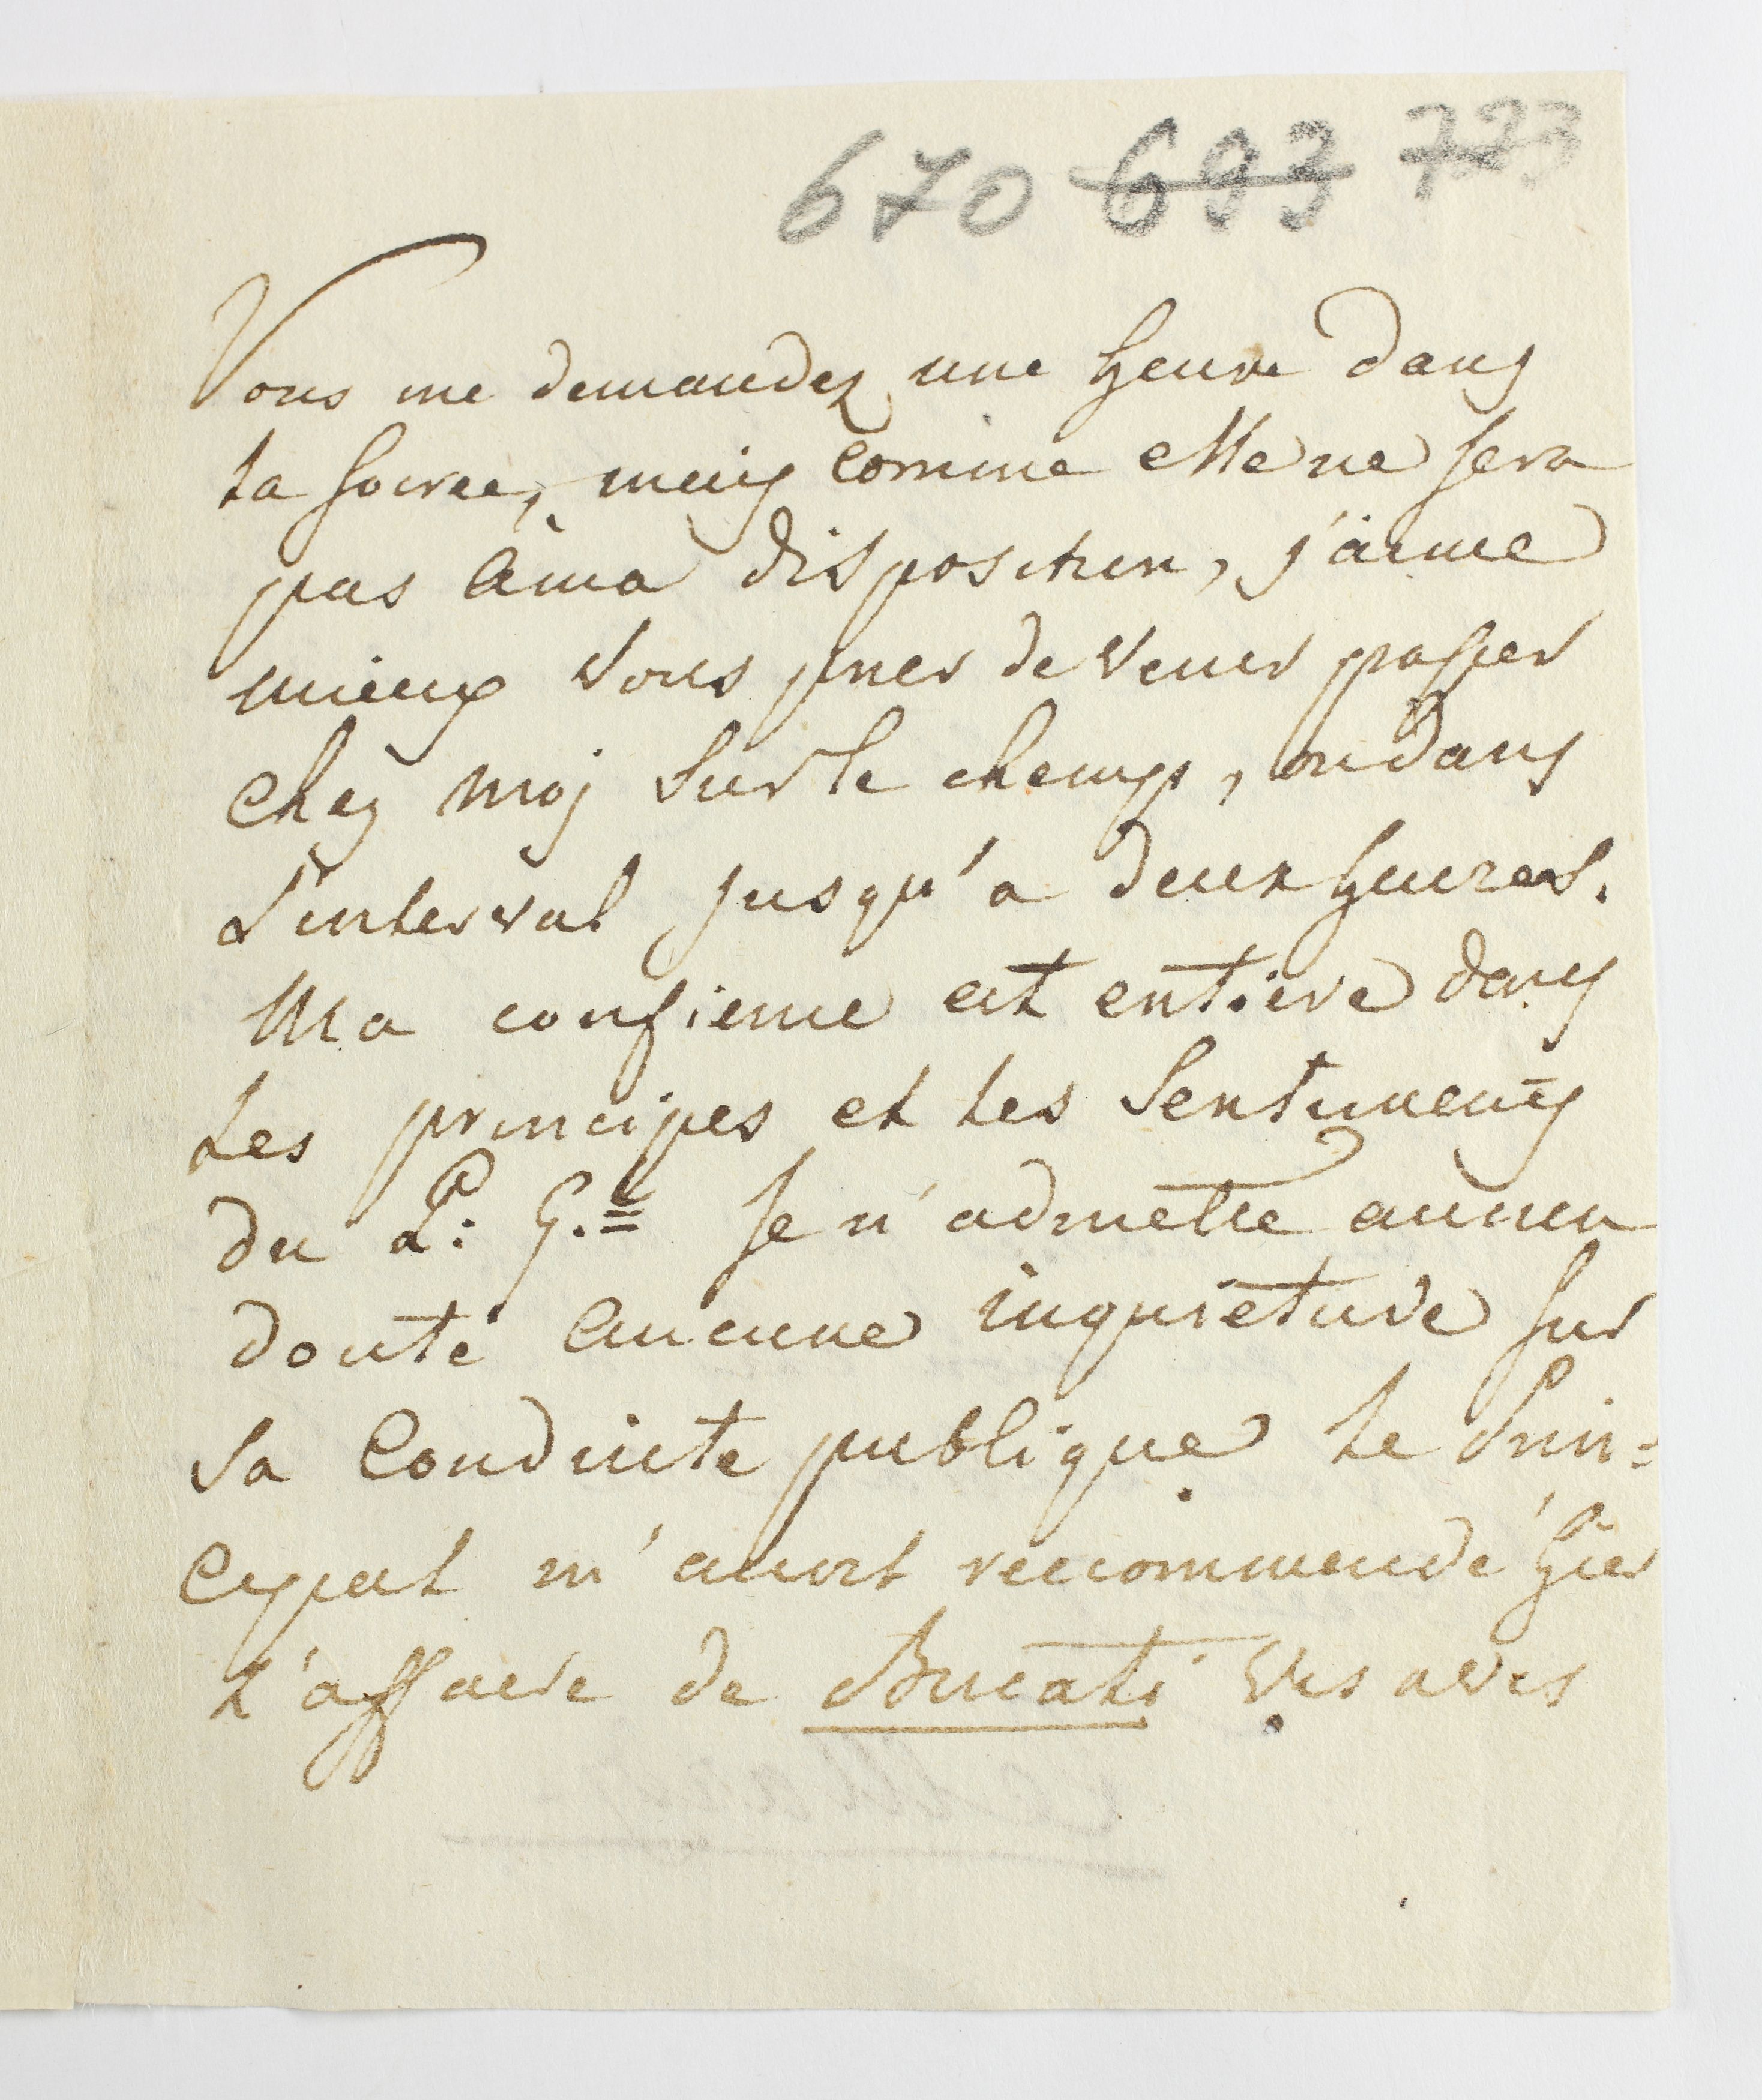 670 693 723
Vous me demandez une heure dans
la soiree, mais comme elle ne sera
pas à ma disposition, j'aime
mieux vous prier de venir passer
chez moj sur le champ, ou dans
L'interval jusqu'a deux heures.
Ma confience est entiere dans
Les principes et les sentiments
du P: G.al Je n'admette aucun
doute aucune inquietude sur
sa conduite publique Le Prin=
cipal m'avoit reccommendé hier
L'affaire de Bucati vis a vis